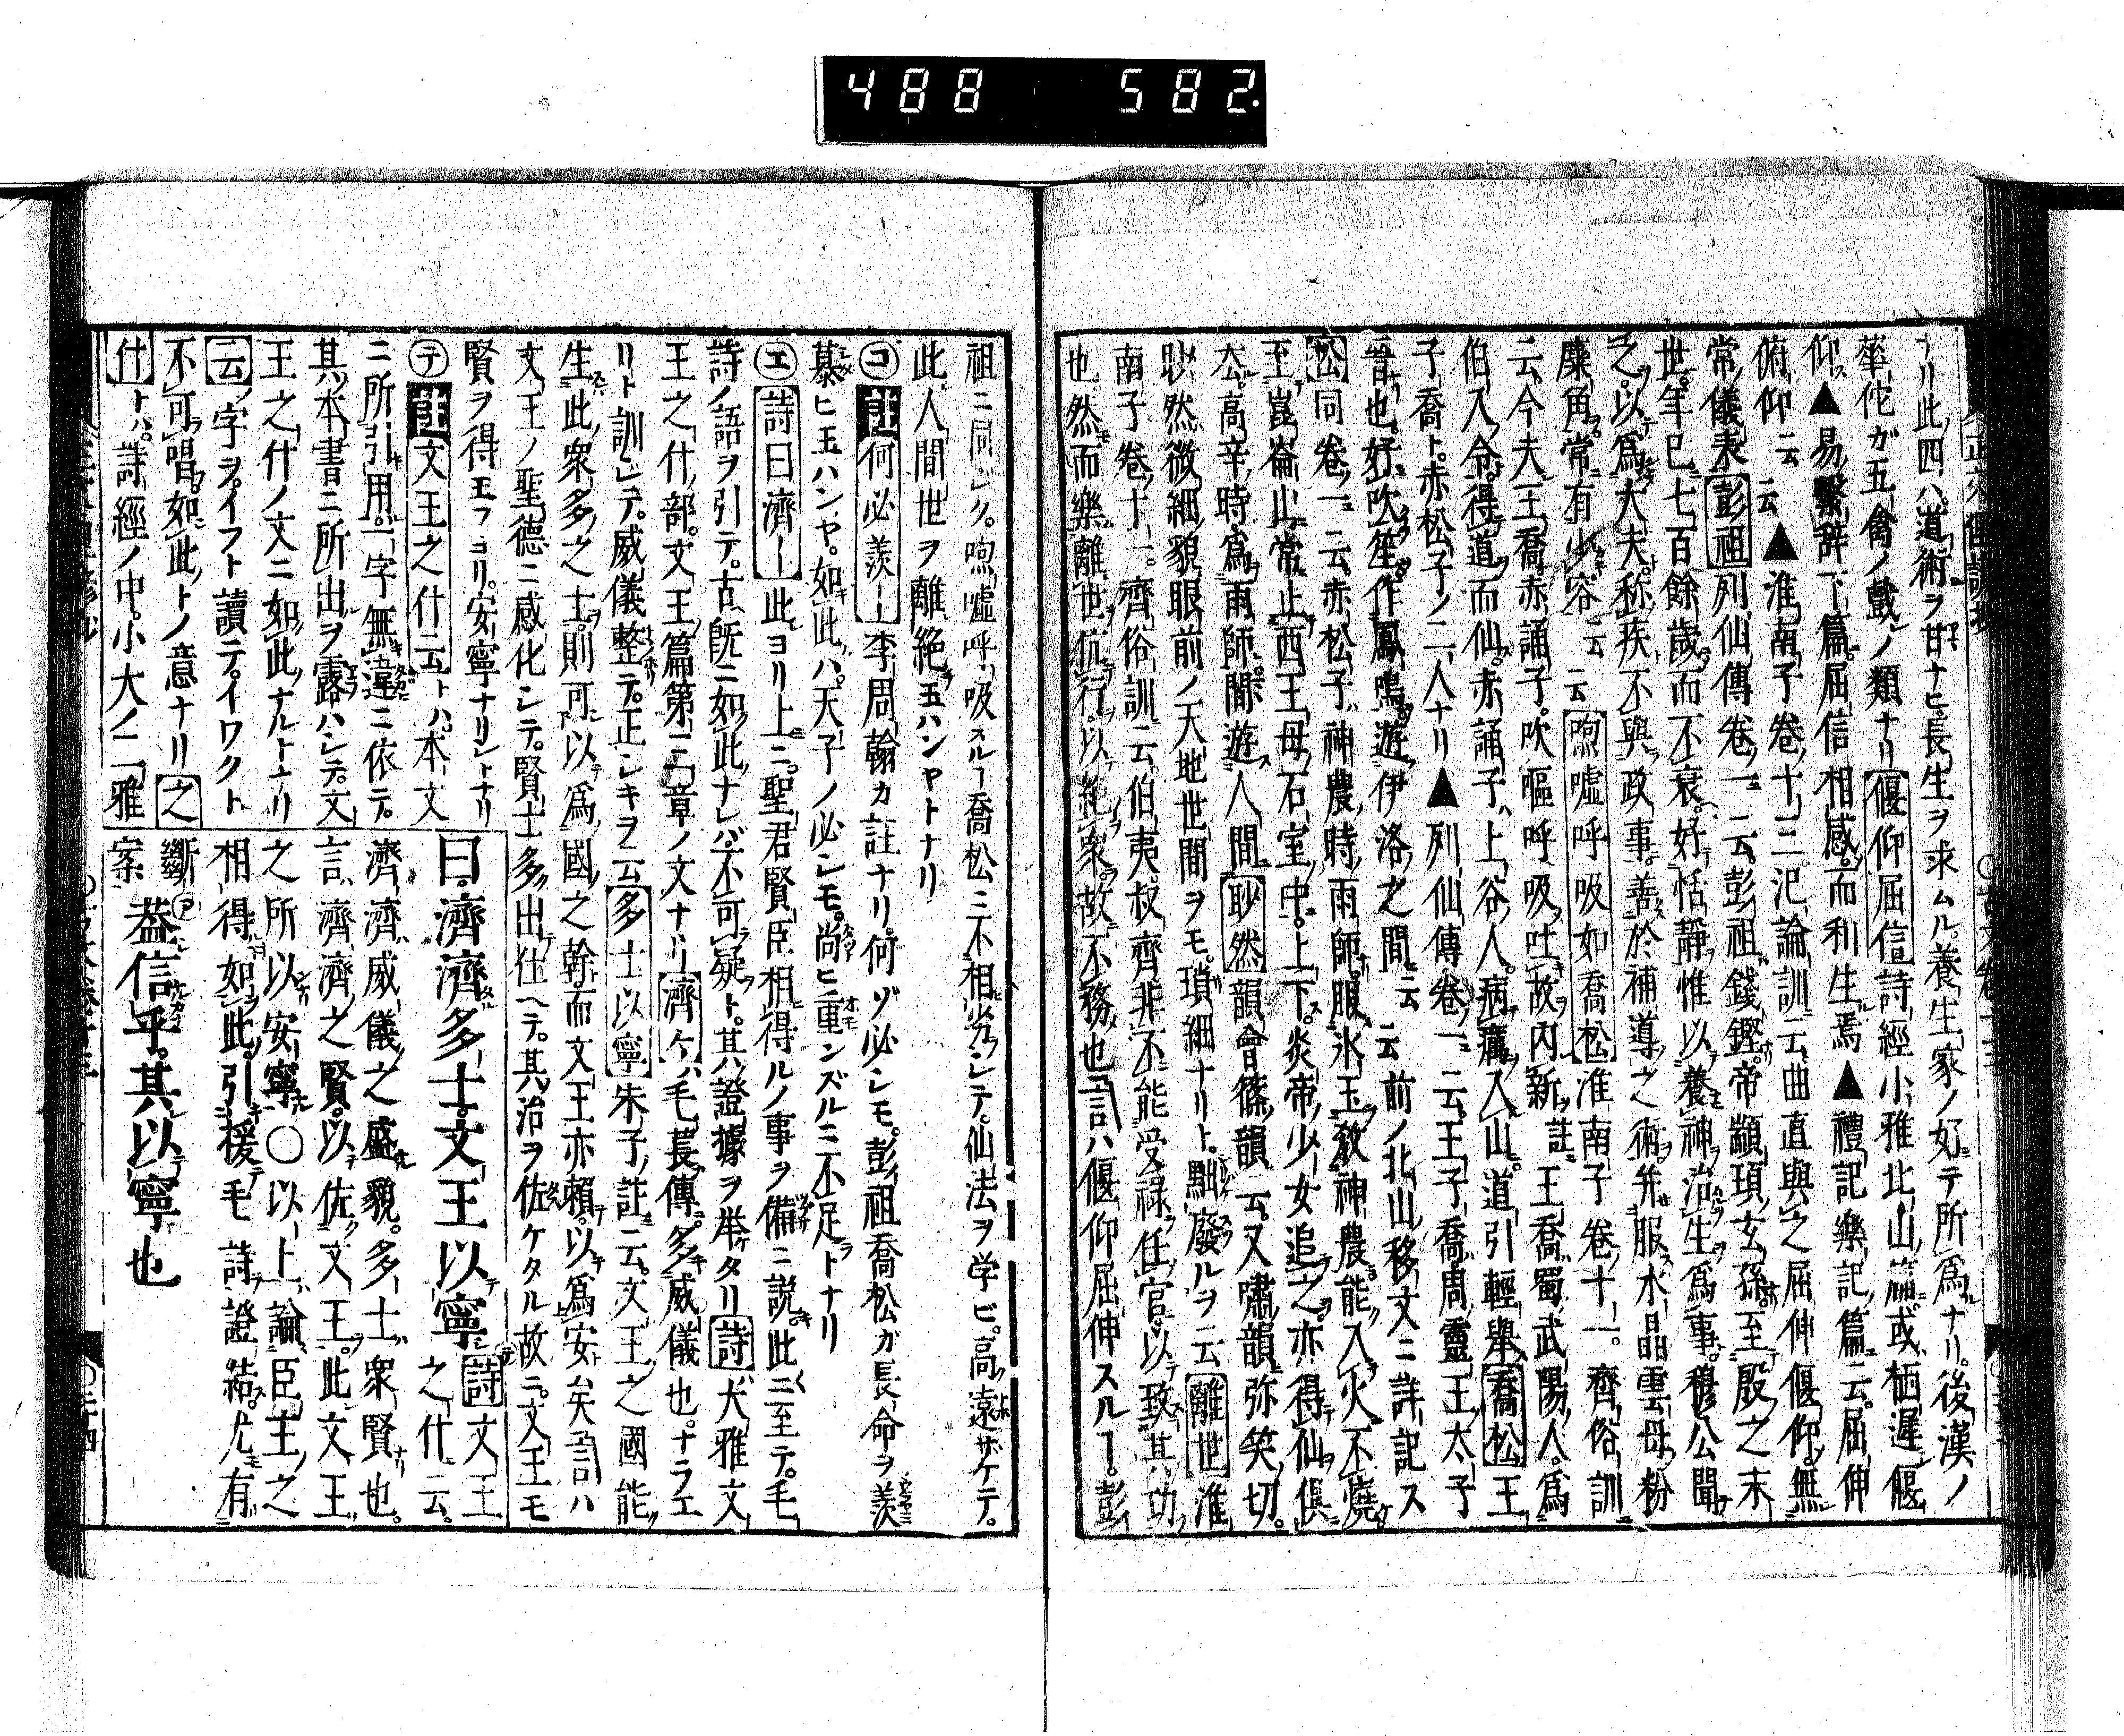 488 582
ナリ此四ハ道術ヲ甘ナヒ長生ヲ求ムル養生家ノ好テ所爲ナリ後漢ノ
華佗ガ五禽ノ戯ノ類ナリ偃仰屈信詩經小雅北山篇或栖遲偃
仰▲易繋辞下篇屈信相感而利生焉▲禮記樂記篇云屈伸
俯仰云云▲淮南子卷十三氾論訓云曲直與之屈伸偃仰無
常儀表彭祖列仙傳卷一云彭祖錢鏗帝顓頊玄孫至殷之末
世年已七百餘歲而不衰好恬靜惟以養神治生爲事穆公聞
之以爲大夫称疾不與政事善於補導之術并服水晶雲母粉
麋角常有少容云云喣嘘呼吸如喬松淮南子卷十一齊俗訓
云今夫王喬赤誦子吹嘔呼吸吐故内新註王喬蜀武陽人爲
伯人令得道而仙赤誦子上谷人病癘入山道引輕舉喬松王
子喬ト赤松子ノ二人ナリ▲列仙傳卷一云王子喬周靈王太子
晋也好吹笙作鳳鳴遊伊洛之間云云前ノ北山移文ニ詳記ス
松同卷一云赤松子神農時雨師服水玉敎神農能入火不燒
至崑崙山常止西王母石室中上下炎帝少女追之亦得仙俱
去高辛時爲雨師間遊人間眇然韻會篠韻云又嘯韻弥笑切
眇然微細貌眼前ノ天地世間ヲモ瑣細ナリト黜廢ルヲ云離世淮
南子卷十一齊俗訓云伯夷叔齊非不能受禄任官以致其功
也然而樂離世伉行以絶衆故不務也言ハ偃仰屈伸スルヿ彭
祖ニ同シク喣嘘呼吸スルヿ喬松ニ不相劣シテ仙法ヲ学ビ高遠ザケテ
此人間世ヲ離絶玉ハンヤトナリ
コ註何必羨ー李周翰カ註ナリ何ゾ必シモ彭祖喬松ガ長命ヲ羨
慕ヒ玉ハンヤ如此ハ天子ノ必シモ尚ヒ重ンズルニ不足トナリ
エ詩曰濟ー此ヨリ上ニ聖君賢臣相得ルノ事ヲ備ニ説此ニ至テ毛
詩ノ語ヲ引テ古既ニ如此ナレバ不可疑ト其證據ヲ挙タリ詩大雅文
王之什部文王篇第三章ノ文ナリ濟ケ毛萇傳多威儀也ナラエ
リト訓シテ威儀整テ正シキヲ云多士以寧朱子註云文王之國能
生此衆多之士則可以爲國之幹而文王亦賴以爲安矣言ハ
文王ノ聖德ニ感化シテ賢士多出仕ヘテ其治ヲ佐ケタル故ニ文王モ
賢ヲ得玉フヨリ安寧ナリシトナリ
テ註文王之什云トハ本文
ニ所引用一字無違ニ依テ
其本書ニ所出ヲ露ハシテ文
王之什ノ文ニ如此ナルトナリ
云字ヲイフト讀テイワクト
不可唱如此トノ意ナリ之
什トハ詩經ノ中小大ノ二雅
曰濟濟多士文王以寧詩文王之什云
濟濟威儀之盛貌多士衆賢也
言濟濟之賢以佐文王此文王
之所以安寧○以上論臣主之
相得如此引援毛詩證結尤有
斷案
ア蓋信乎其以寧也